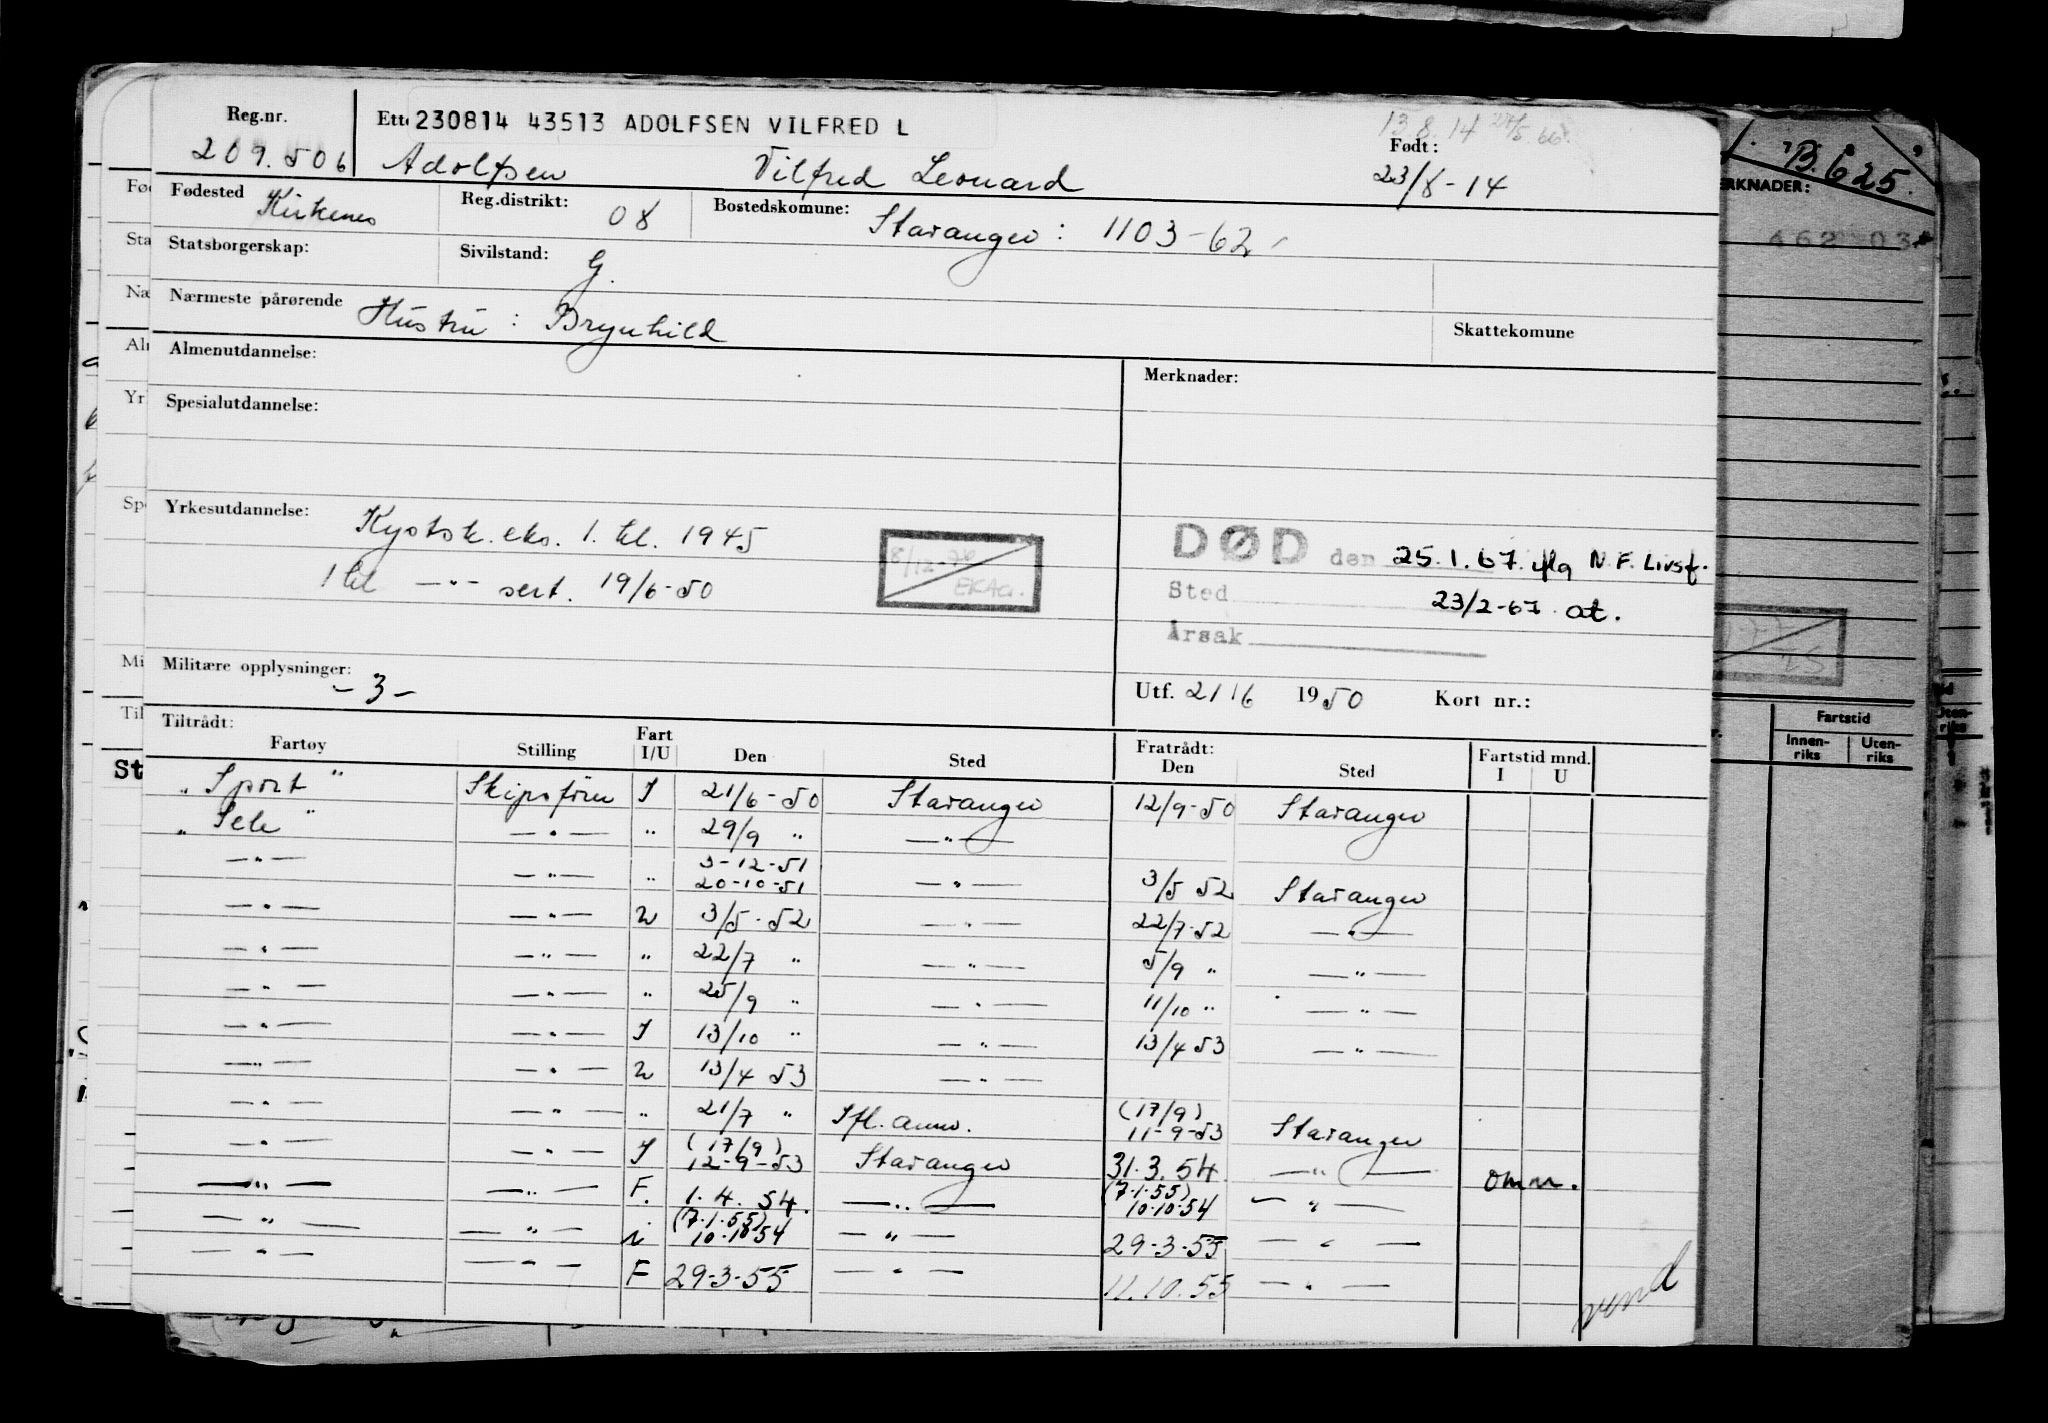 Reg.nr. 230814 43513 ADOLFSEN VILFRED L 13.8.14
Født:
209.506 Adolfsen Vilfred Leonard 23/8-14
Fødested Kirkenes Reg.distrikt: 08 Bostedskomune: Stavanger: 1103-62
Statsborgerskap: Sivilstand: G.
Nærmeste pårørende Hustru: Brynhild Skattekomune
Almenutdannelse: Merknader:
Spesialutdannelse:
Yrkesutdannelse: Kystsk. eks. 1. kl. 1945
1 kl —"— sert. 19/6-50
DØD den 25.1.67. iflg N.F. Livsf.
Sted 23/2-67. at.
Årsak
Militære opplysninger: -3-
Utf. 21/6 1950 Kort nr.:
Tiltrådt: Fratrådt:
Fartøy Stilling Fart I/U Den Sted Den Sted Fartstid mnd. I U
"Sport" Skipsfører I 21/6-50 Stavanger 12/9-50 Stavanger
"Sele" —"— " 29/9 " —"—
—"— —"— " 3-12-51 20-10-51 —"— 3/5 52 Stavanger
—"— —"— U 3/5-52 —"— 22/7-52 —"—
—"— —"— " 22/7 " —"— 5/9 " —"—
—"— —"— " 25/9 " —"— 11/10 " —"—
—"— —"— I 13/10 " —"— 13/4 53 —"—
—"— —"— U 13/4 53 —"—
—"— —"— " 21/7 " (17/9) 11-9-53 Stavanger
—"— —"— I (17/9) 12-9-53 Stavanger 31.3.54. —"— omn.
—"— —"— F. 1.4.54. —"— (7.1.55) 10.10.54 —"—
—"— —"— i (7.1.55) 10.10.54 —"— 29-3-55 —"—
—"— —"— F 29-3-55 —"— 11.10.55 —"—
vend
B.625.
MERKNADER:
Fartstid
Innen-riks Uten-riks